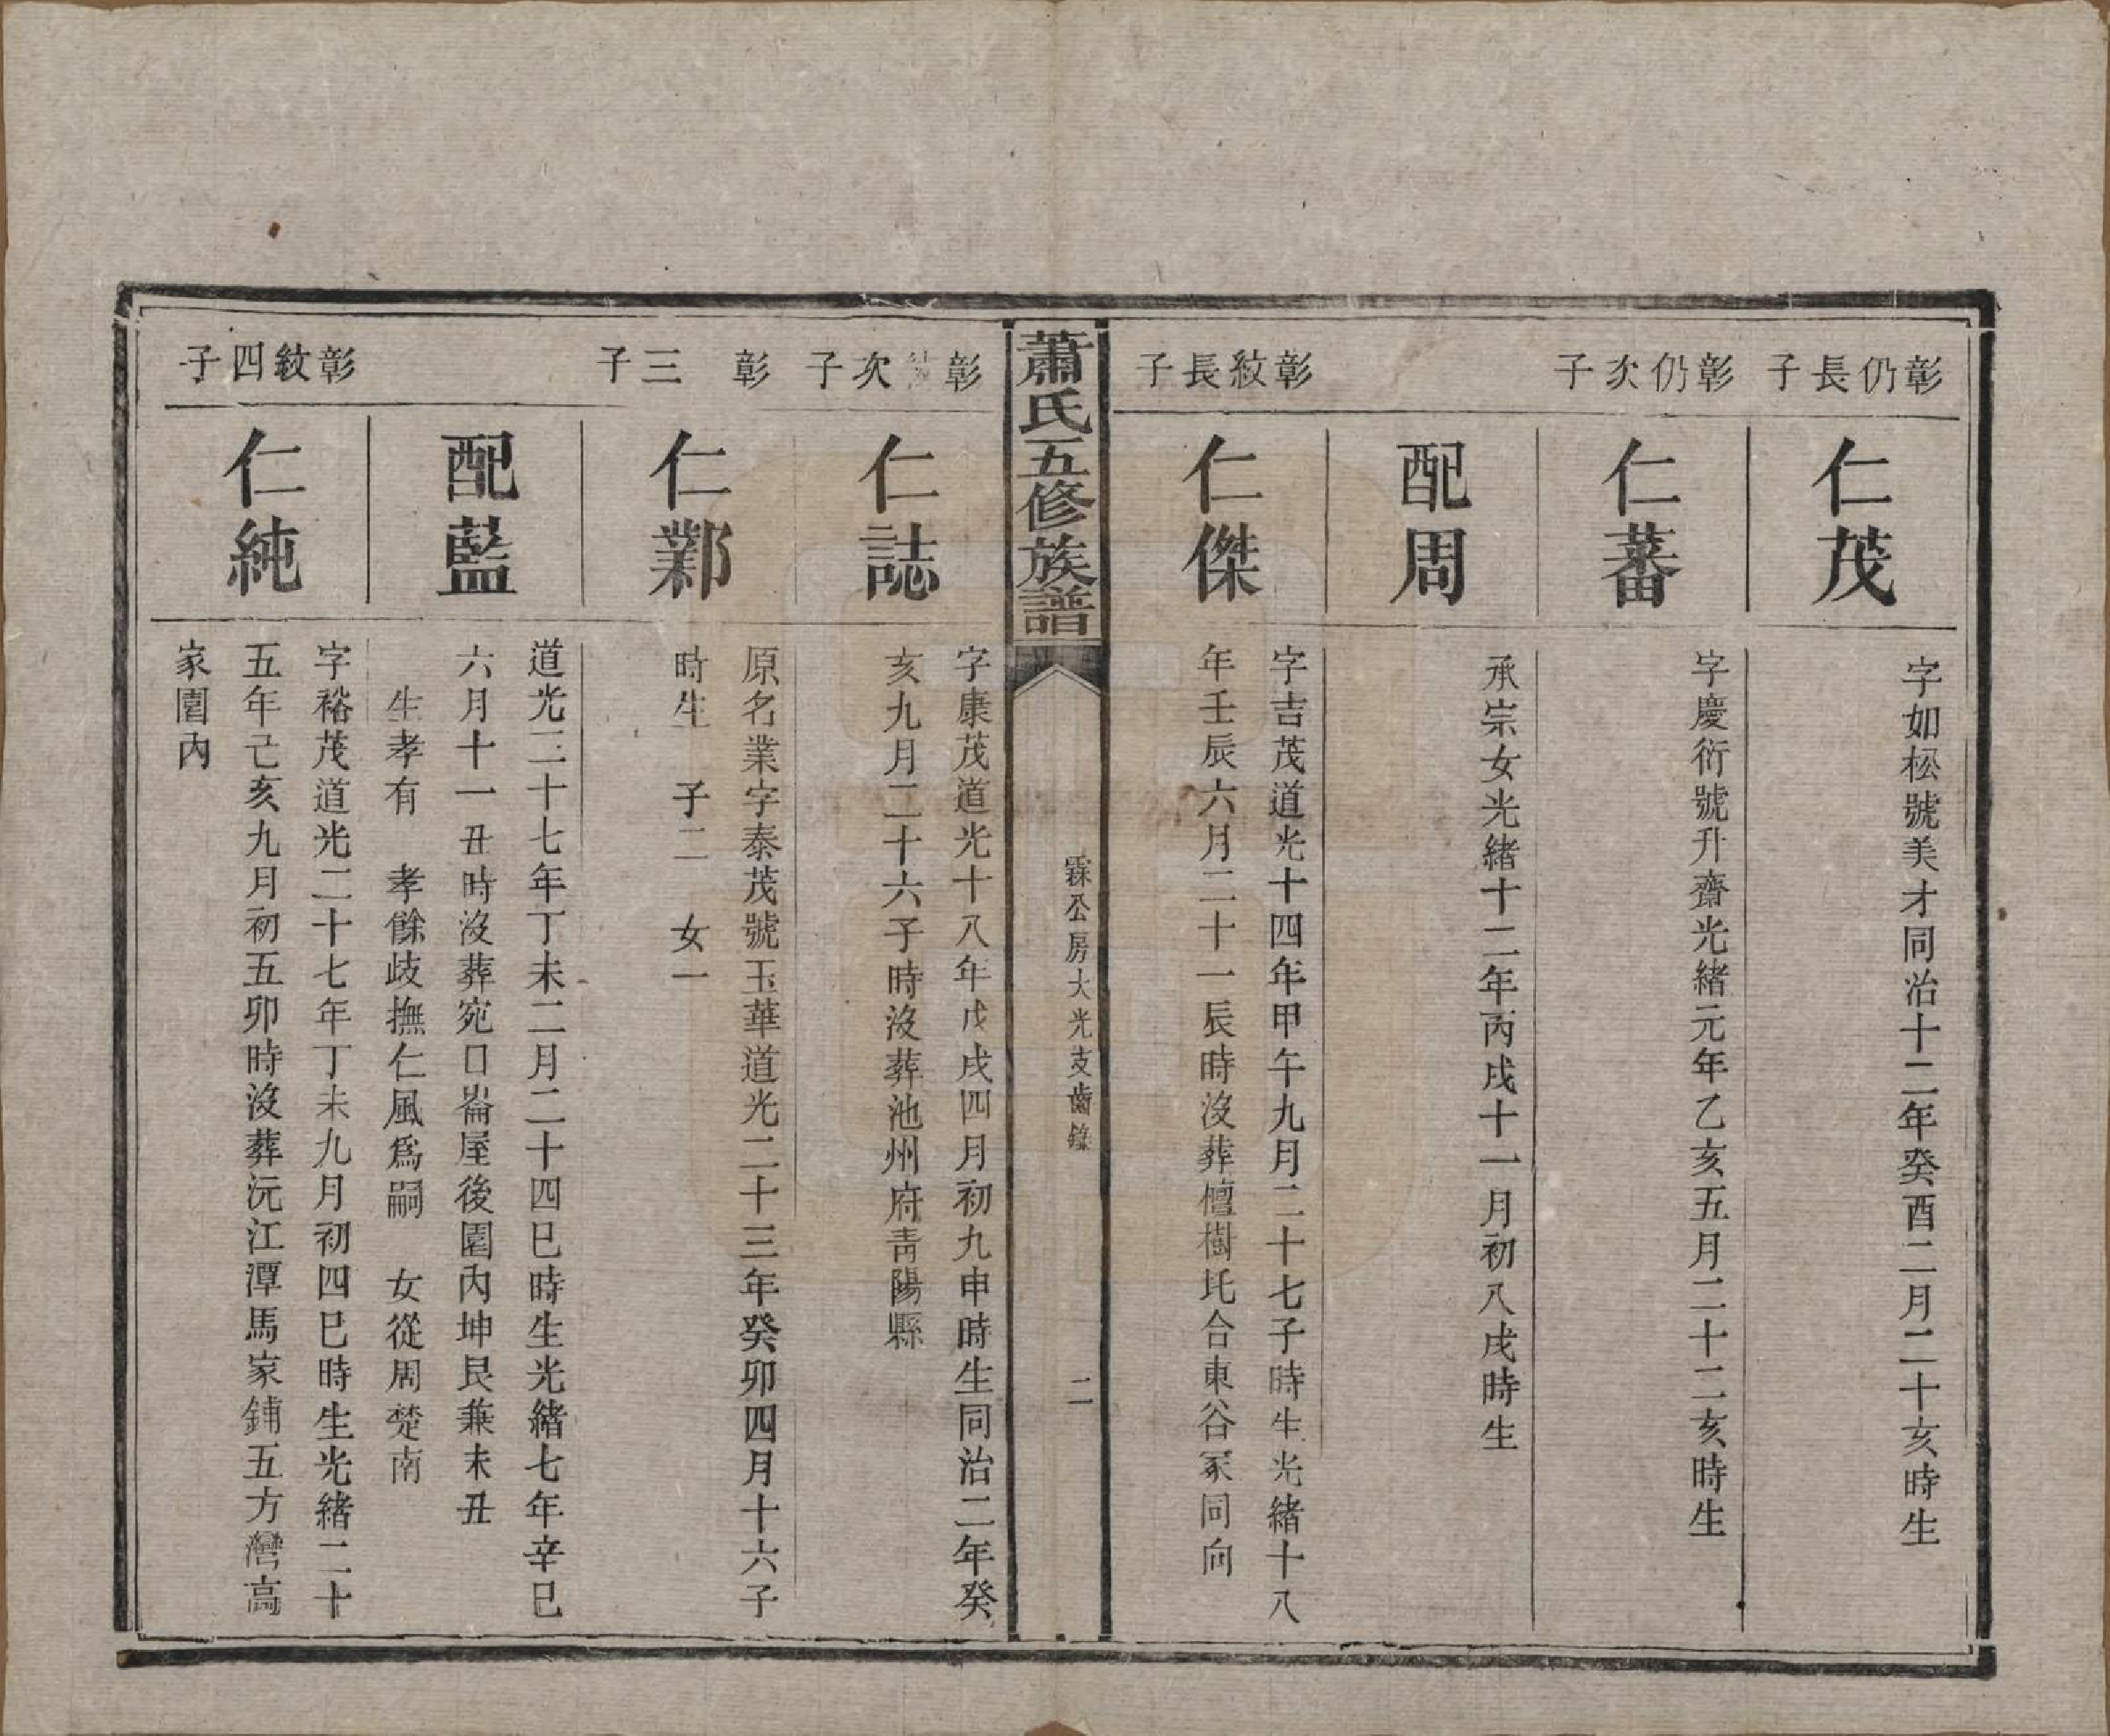 彰仍長子
仁茂
字如松號美才同治十二年癸酉二月二十亥時生
彰仍次子
仁蕃
字慶衍號升齋光緒元年乙亥五月二十二亥時生
配周
承宗女光緒十二年丙戌十一月初八戌時生
彰紋長子
仁傑
字吉茂道光十四年甲午九月二十七子時生光緒十八
年壬辰六月二十一辰時沒葬檀樹坉合東谷冢同向
蕭氏五修族譜
霖公房大光支齒錄
二
彰次子
仁誌
字康茂道光十八年戊戌四月初九申時生同治二年癸
亥九月二十六子時沒葬池州府青陽縣
彰三子
仁鄴
原名業字泰茂號玉華道光二十三年癸卯四月十六子
時生 子二 女一
配藍
道光二十七年丁未二月二十四巳時生光緒七年辛巳
六月十一丑時沒葬宛口崙屋後園內坤艮兼未丑
生孝有 孝餘歧撫仁風爲嗣 女從周楚南
彰紋四子
仁純
字裕茂道光二十七年丁未九月初四巳時生光緒二十
五年己亥九月初五卯時沒葬沅江潭馬家鋪五方灣高
家園內